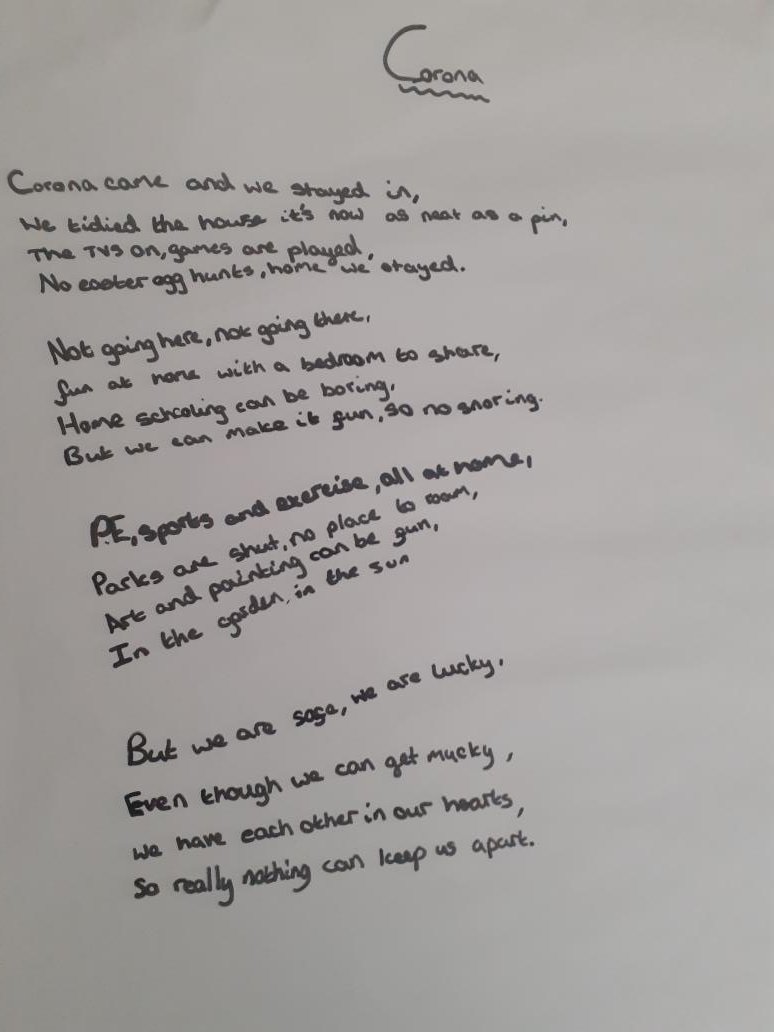 Corona
Corona came and we stayed in,
We tidied the house it's now as neat as a pin,
The TVs on, games are played,
No easter egg hunts, home we stayed.
Not going here, not going there,
fun at home with a bedroom to share,
Home schooling can be boring,
But we can make it fun, so no snoring.
P.E, sports and exercise, all at home,
Parks are shut, no place to roam,
Art and painting can be fun,
In the garden, in the sun
But we are safe, we are lucky,
Even though we can get mucky,
we have each other in our hearts,
So really nothing can keep us apart.